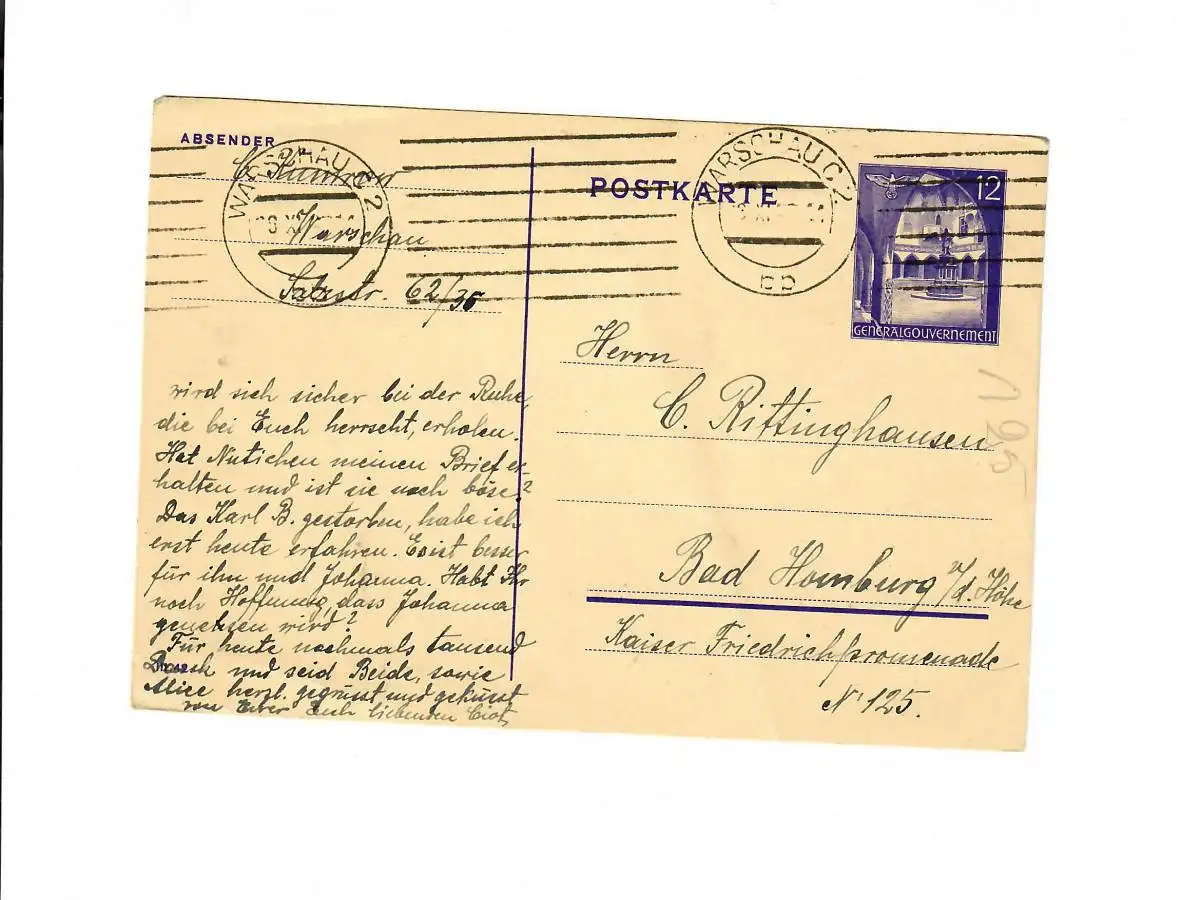 ABSENDER
Warschau
62/35
WARSCHAU C 2
POSTKARTE
WARSCHAU C 2
bb
12
GENERALGOUVERNEMENT
Herrn
C. Rittinghausen
Bad Homburg v/d. Höhe
Kaiser Friedrichpromenade
N° 125.
195
wird sich sicher bei der Ruhe,
die bei Euch herrscht, erholen.
Hat Nutichen meinen Brief er-
halten und ist sie noch böse?
Das Karl B. gestorben, habe ich
erst heute erfahren. Es ist besser
für ihn und Johanna. Habt Ihr
noch Hoffnung, dass Johanna
genesen wird?
Für heute nochmals tausend
Dank und seid Beide, sowie
Alice herzl. gegrüsst und geküsst
von Eurer Euch liebenden